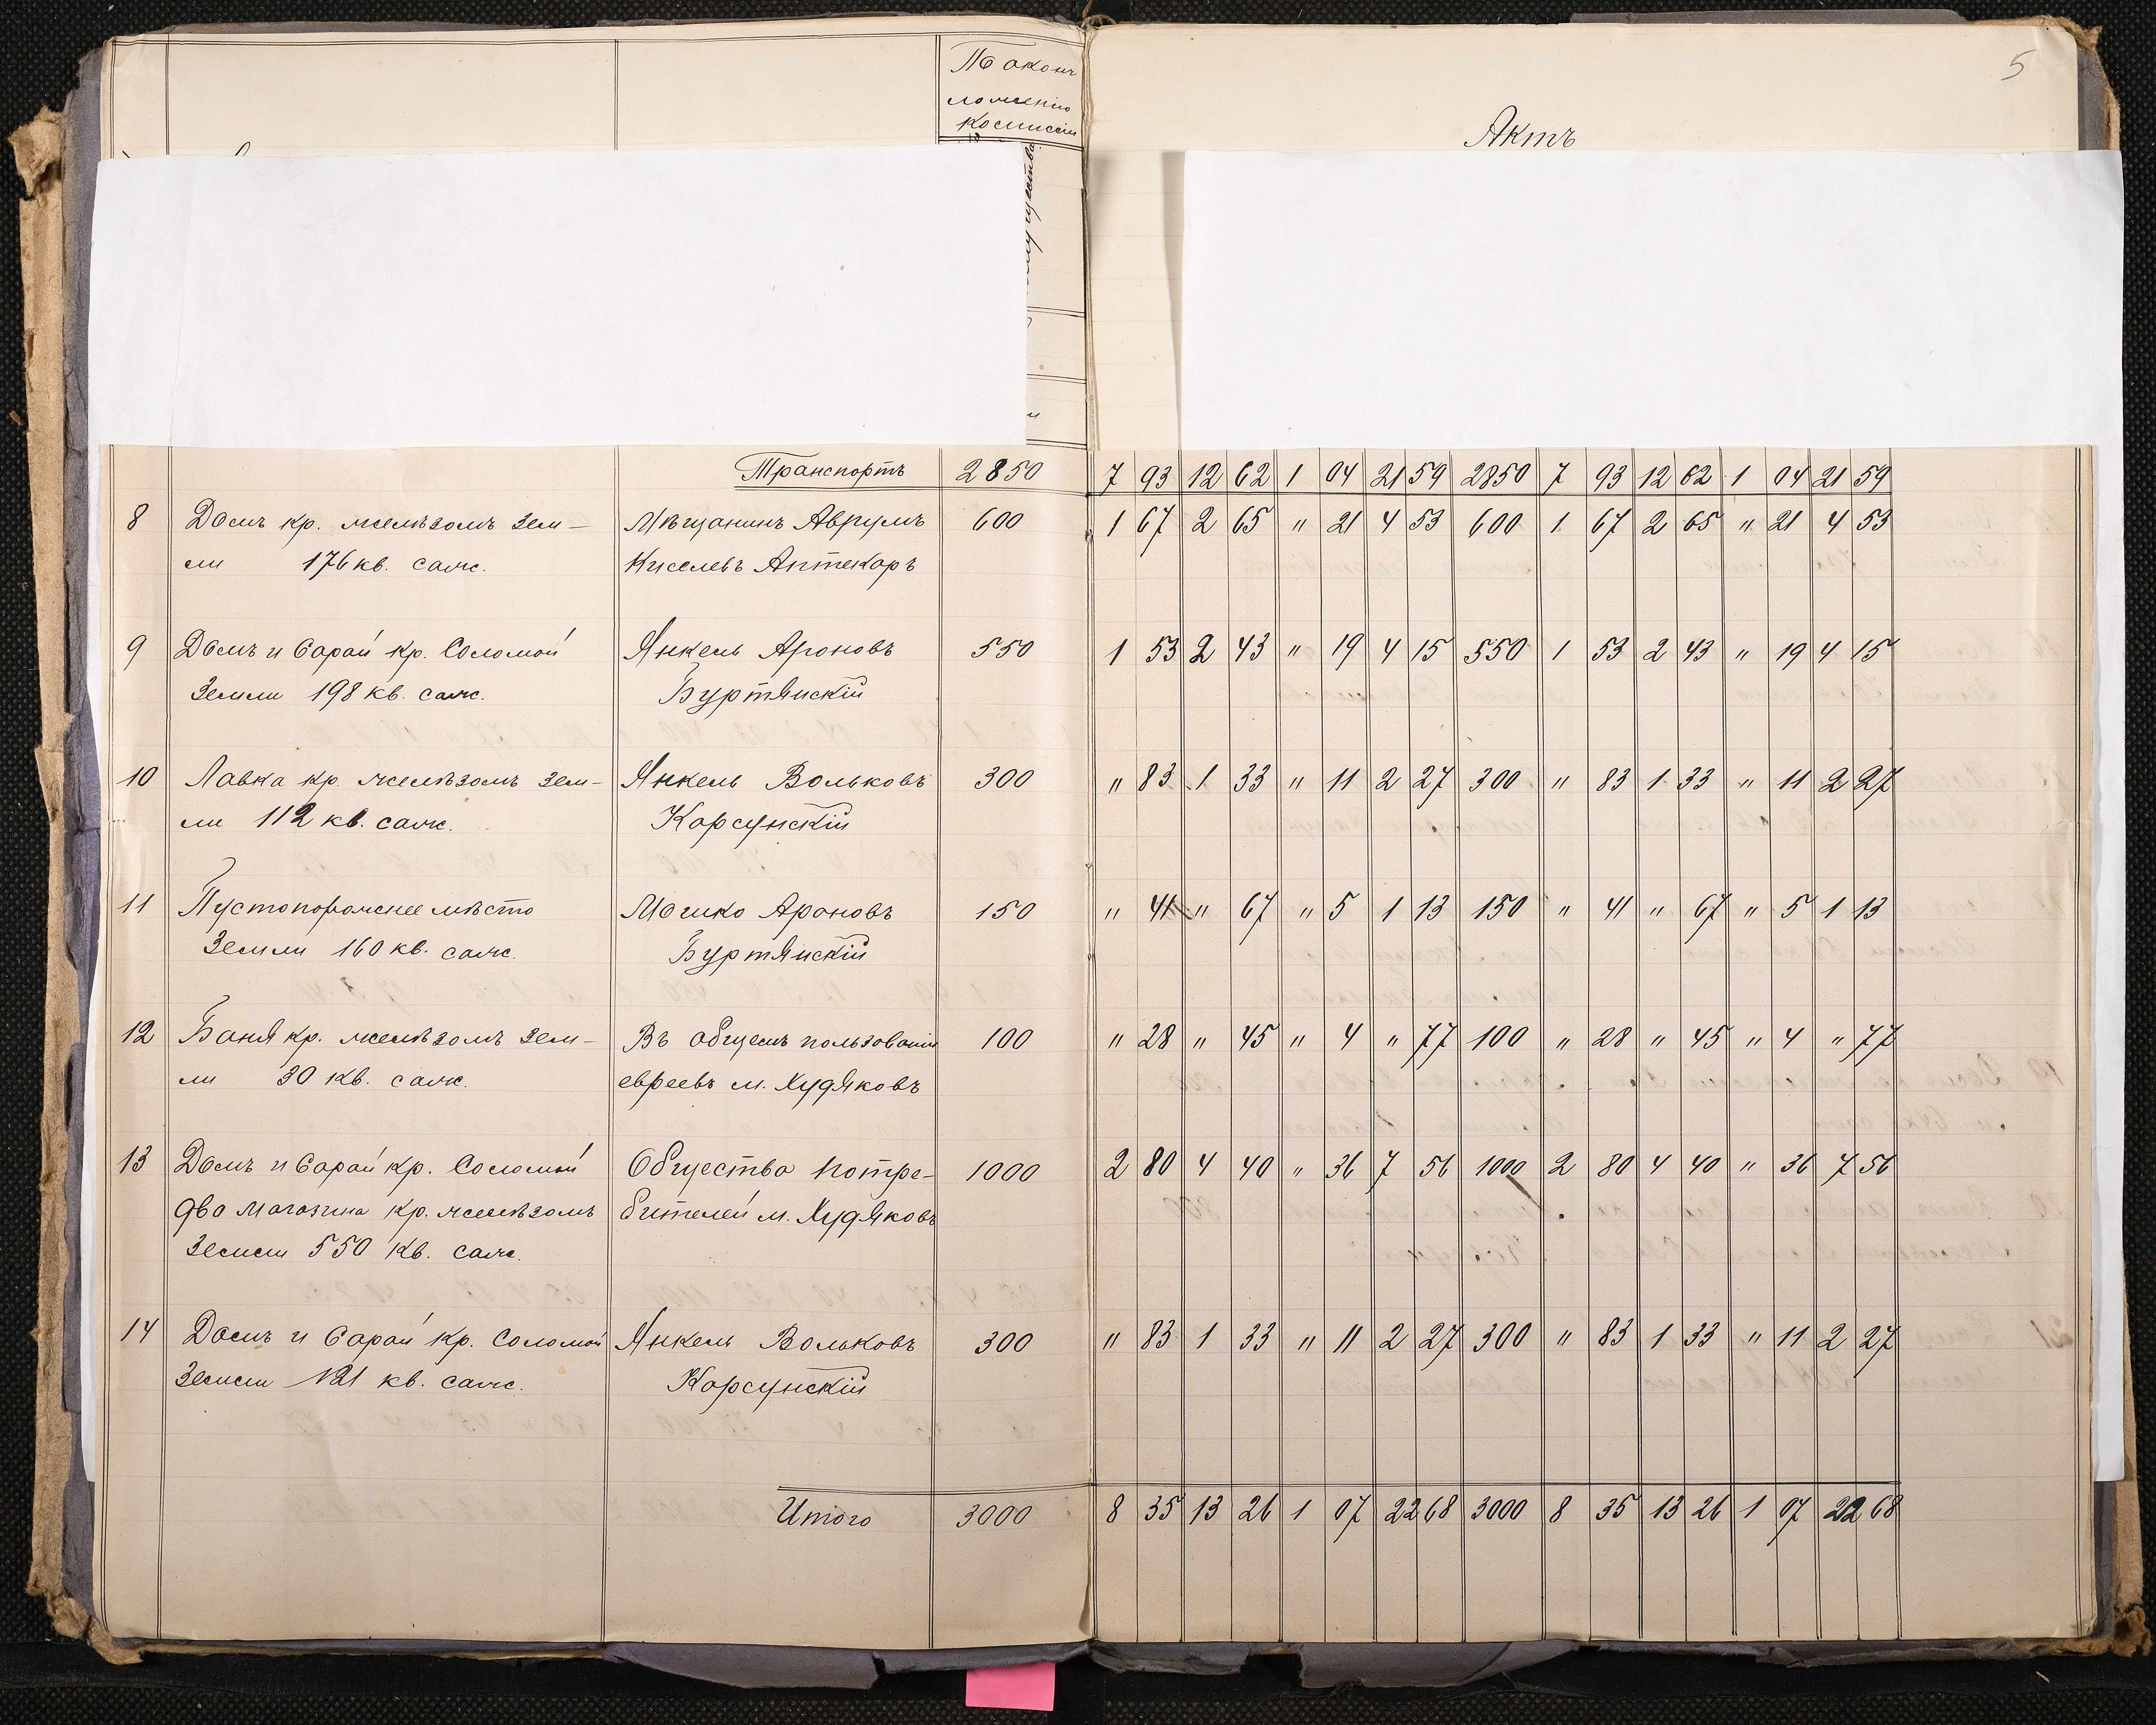 По оконч
ложенію
Комиссіи
5
Актъ
Транспортъ 2850 7 93 12 62 1 04 21 59 2850 7 93 12 62 1 04 21 59
8 Домъ кр. желѣзомъ зем- Мѣщанинъ Аврумъ 600 1 67 2 65 " 21 4 53 600 1 67 2 65 " 21 4 53
ли 176 кв. саж. Киселевъ Аптекаръ
9 Домъ и Сарай кр. Соломой Янкель Ароновъ 550 1 53 2 43 " 19 4 15 550 1 53 2 43 " 19 4 15
Земли 198 кв. саж. Буртянскій
10 Лавка кр. желѣзомъ зем- Янкель Вольковъ 300 " 83 1 33 " 11 2 27 300 " 83 1 33 " 11 2 27
ли 112 кв. саж. Корсунскій
11 Пустопорожнее мѣсто Мошко Ароновъ 150 " 41 " 67 " 5 1 13 150 " 41 " 67 " 5 1 13
Земли 160 кв. саж. Буртянскій
12 Баня кр. желѣзомъ зем- Въ общемъ пользованіи 100 " 28 " 45 " 4 " 77 100 " 28 " 45 " 4 " 77
ли 30 кв. саж. евреевъ м. Худяковъ
13 Домъ и Сарай кр. Соломой Общества потре- 1000 2 80 4 40 " 36 7 56 1000 2 80 4 40 " 36 7 56
два магазина кр. желѣзомъ бителей м. Худяковъ
Земли 550 кв. саж.
14 Домъ и Сарай кр. Соломой Янкель Вольковъ 300 " 83 1 33 " 11 2 27 300 " 83 1 33 " 11 2 27
Земли 121 кв. саж. Корсунскій
Итого 3000 8 35 13 26 1 07 22 68 3000 8 35 13 26 1 07 22 68